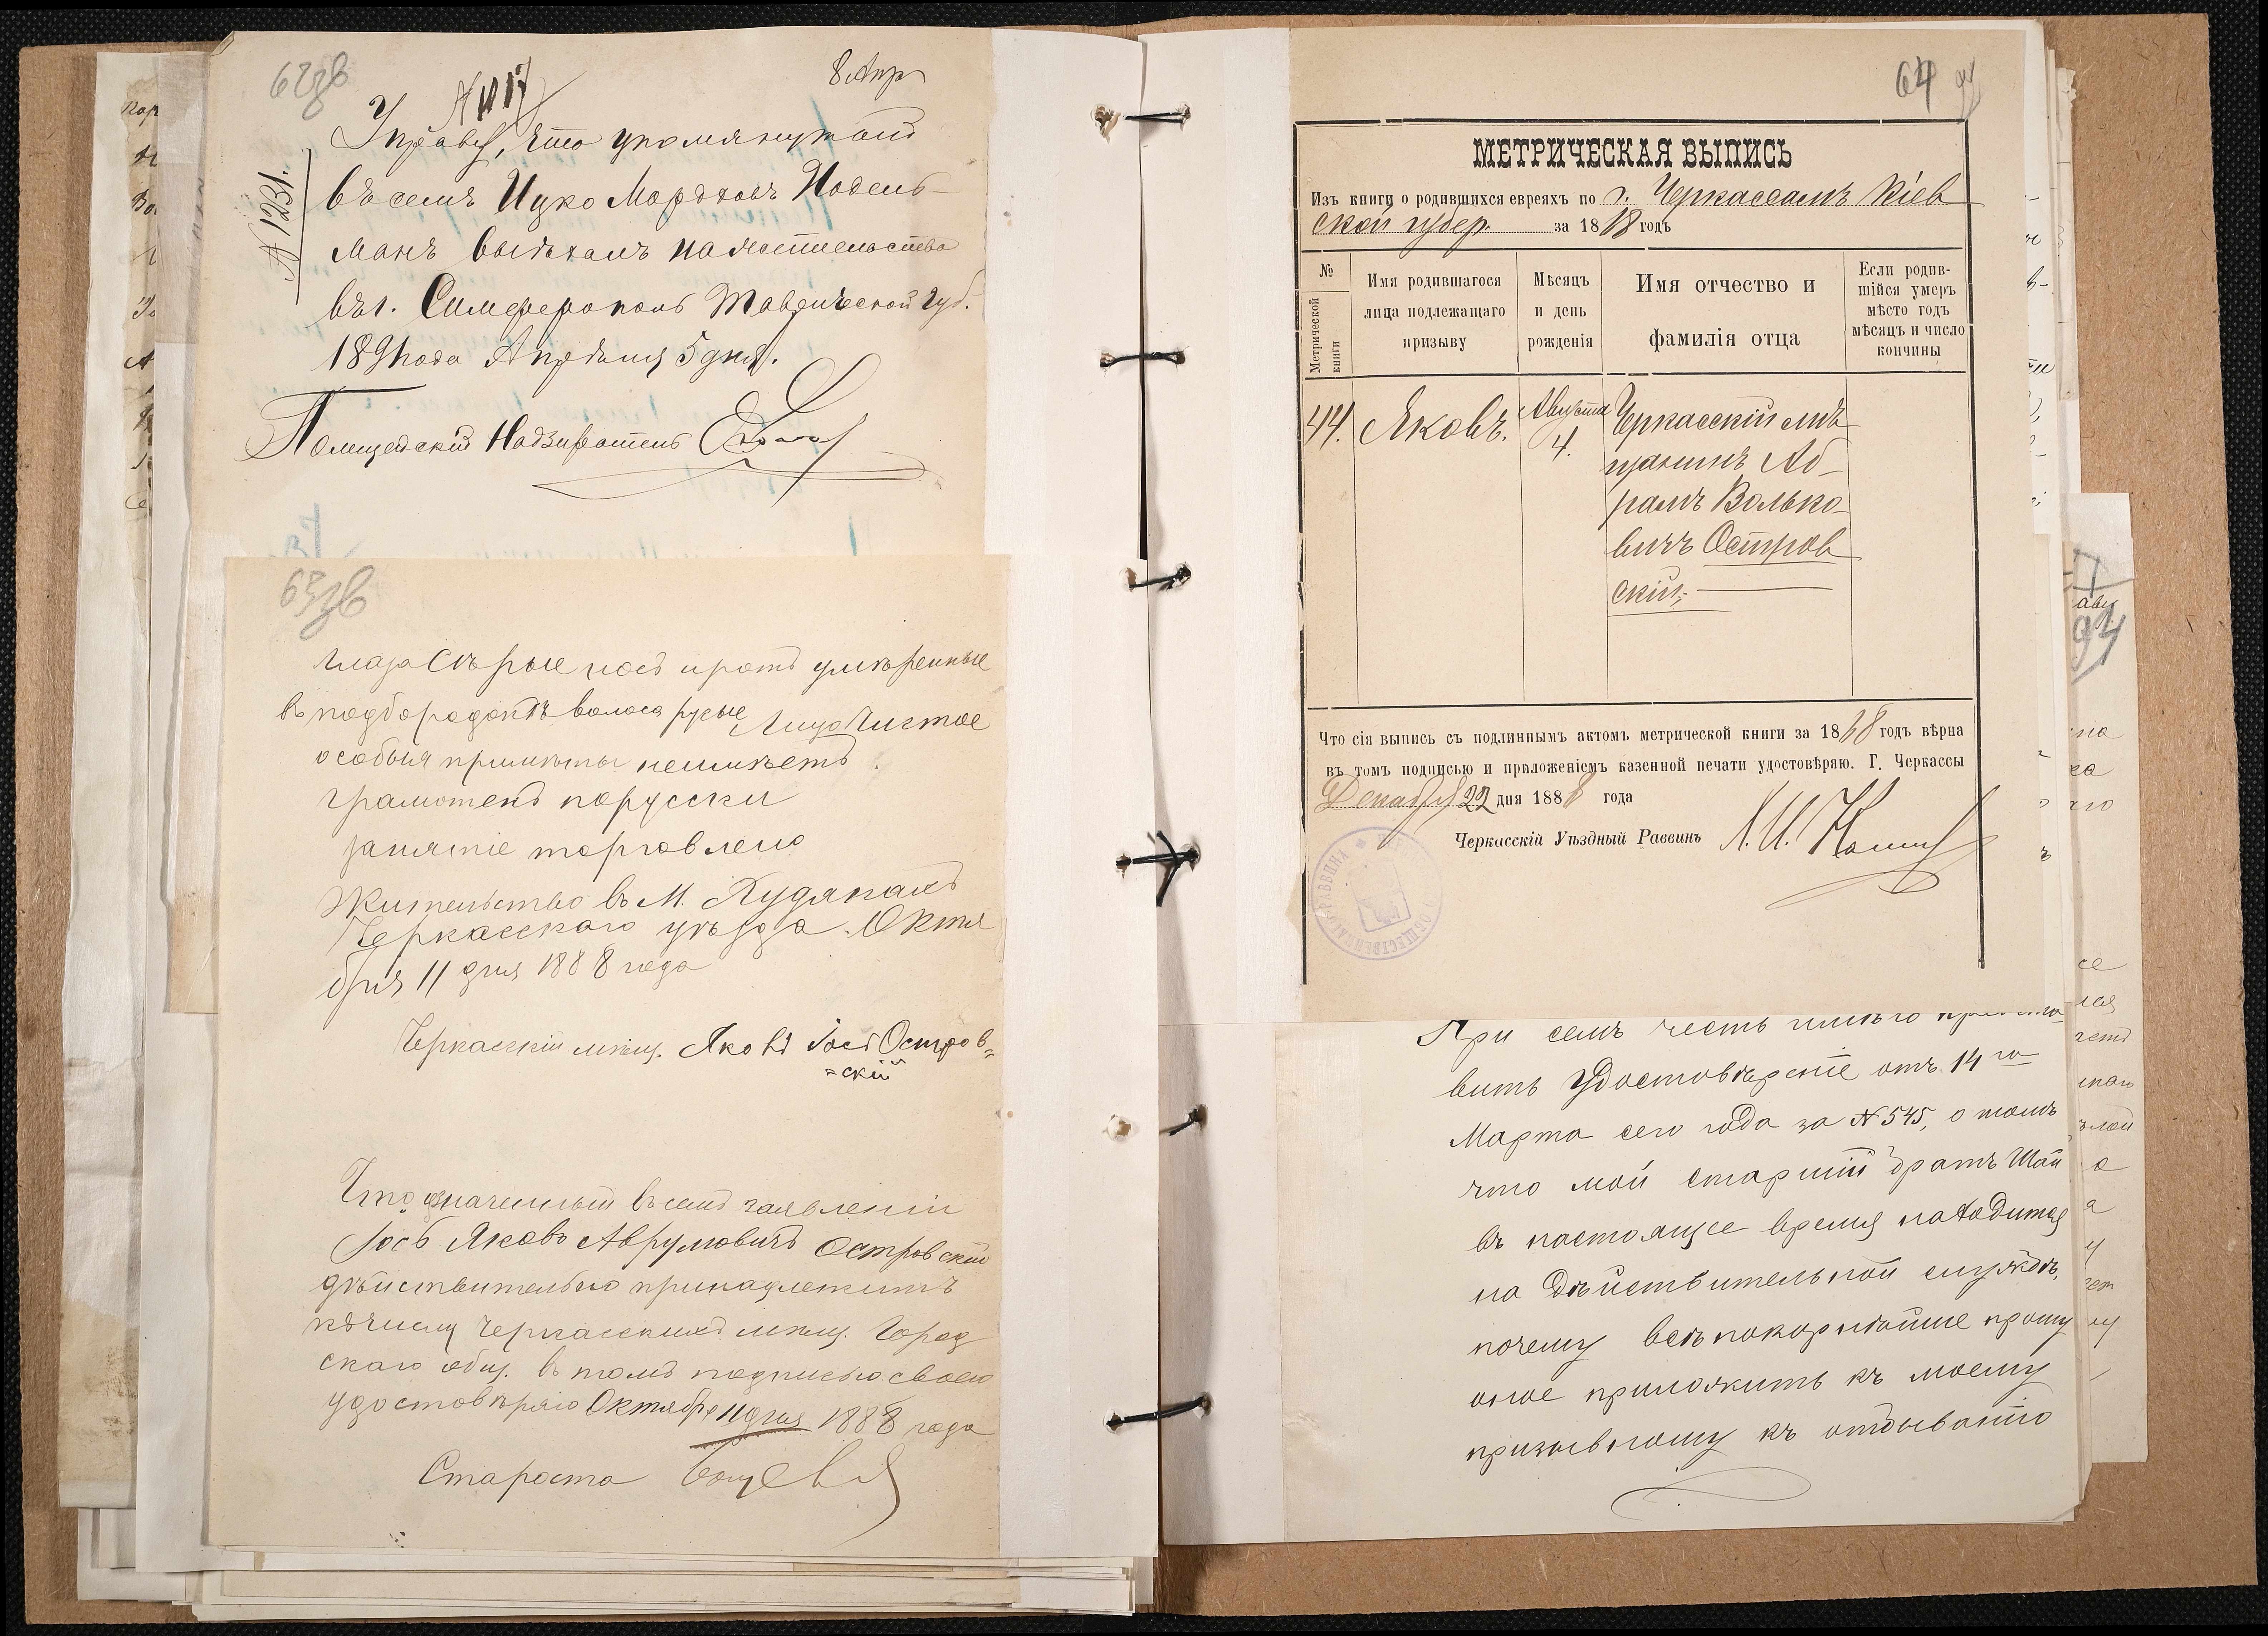 62зв
8 Апр
N 1321.
Управу, что упомянутый
въ семъ Ицко Мордховъ Нодель-
манъ выѣхалъ на жительство
въ г. Симферополь Таврической губ.
1891 года Апрѣля 5 дня.
Полицейскій Надзиратель
63зв
глаза сѣрые носъ и ротъ умѣренные
въ подбородкѣ волоса русые лицо чистое
особыя примѣты неимѣетъ.
грамотенъ порусски
занятіе торговлею
Жительство въ М.
Черкасскаго уѣзда. Октя
бря 11 дня 1888 года
Черкасскій мѣщ. Яковъ Іось Остров=
=скій
Что означенный въ семъ заявленіи
Іось Яковъ Аврумовичъ Островскій
дѣйствительно принадлежитъ
къ числу Черкасскихъ мѣщ. Город
скаго общ. въ томъ подписью своею
удостовѣряю Октября 11 дня 1888 года
Староста
64
МЕТРИЧЕСКАЯ ВЫПИСЬ
Изъ книги о родившихся евреяхъ по г. Черкассамъ Кіев
ской губер. за 1868 годъ
№ Метрической книги
Имя родившагося лица подлежащаго призыву
Мѣсяцъ и день рожденія
Имя отчество и фамилія отца
Если родив-шійся умеръ мѣсто годъ мѣсяцъ и число кончины
44. Яковъ. Августа 4. Черкасскій мѣ-
щанинъ Аб-
рамъ Волько-
вичъ Остров
скій;
Что сія выпись съ подлиннымъ актомъ метрической книги за 1868 годъ вѣрна
въ томъ подписью и приложеніемъ казенной печати удостовѣряю. Г. Черкассы
Декабря 22 дня 1888 года
Черкасскій Уѣздный Раввинъ
При семъ честь имѣю предста
вить Удостовѣреніе отъ 14 го
Марта сего года за N 545, о томъ
что мой старшій братъ Шай
въ настоящее время находится
на дѣйствительной службѣ,
почему всепокорнѣйше прошу
оное приложить къ моему
призывному къ отбыванію